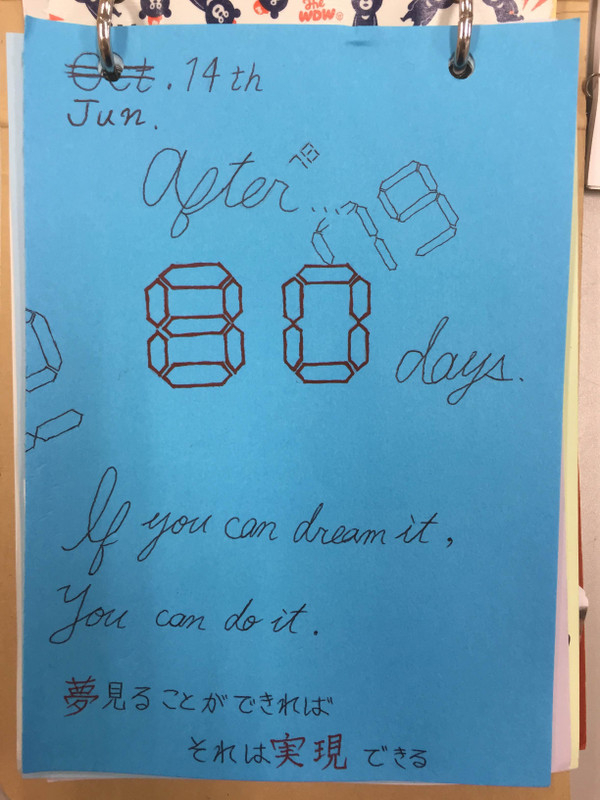 The
WDW©
Oct. 14th
Jun.
After...
78
79
80 days.
If you can dream it,
You can do it.
夢見ることができれば
それは実現できる